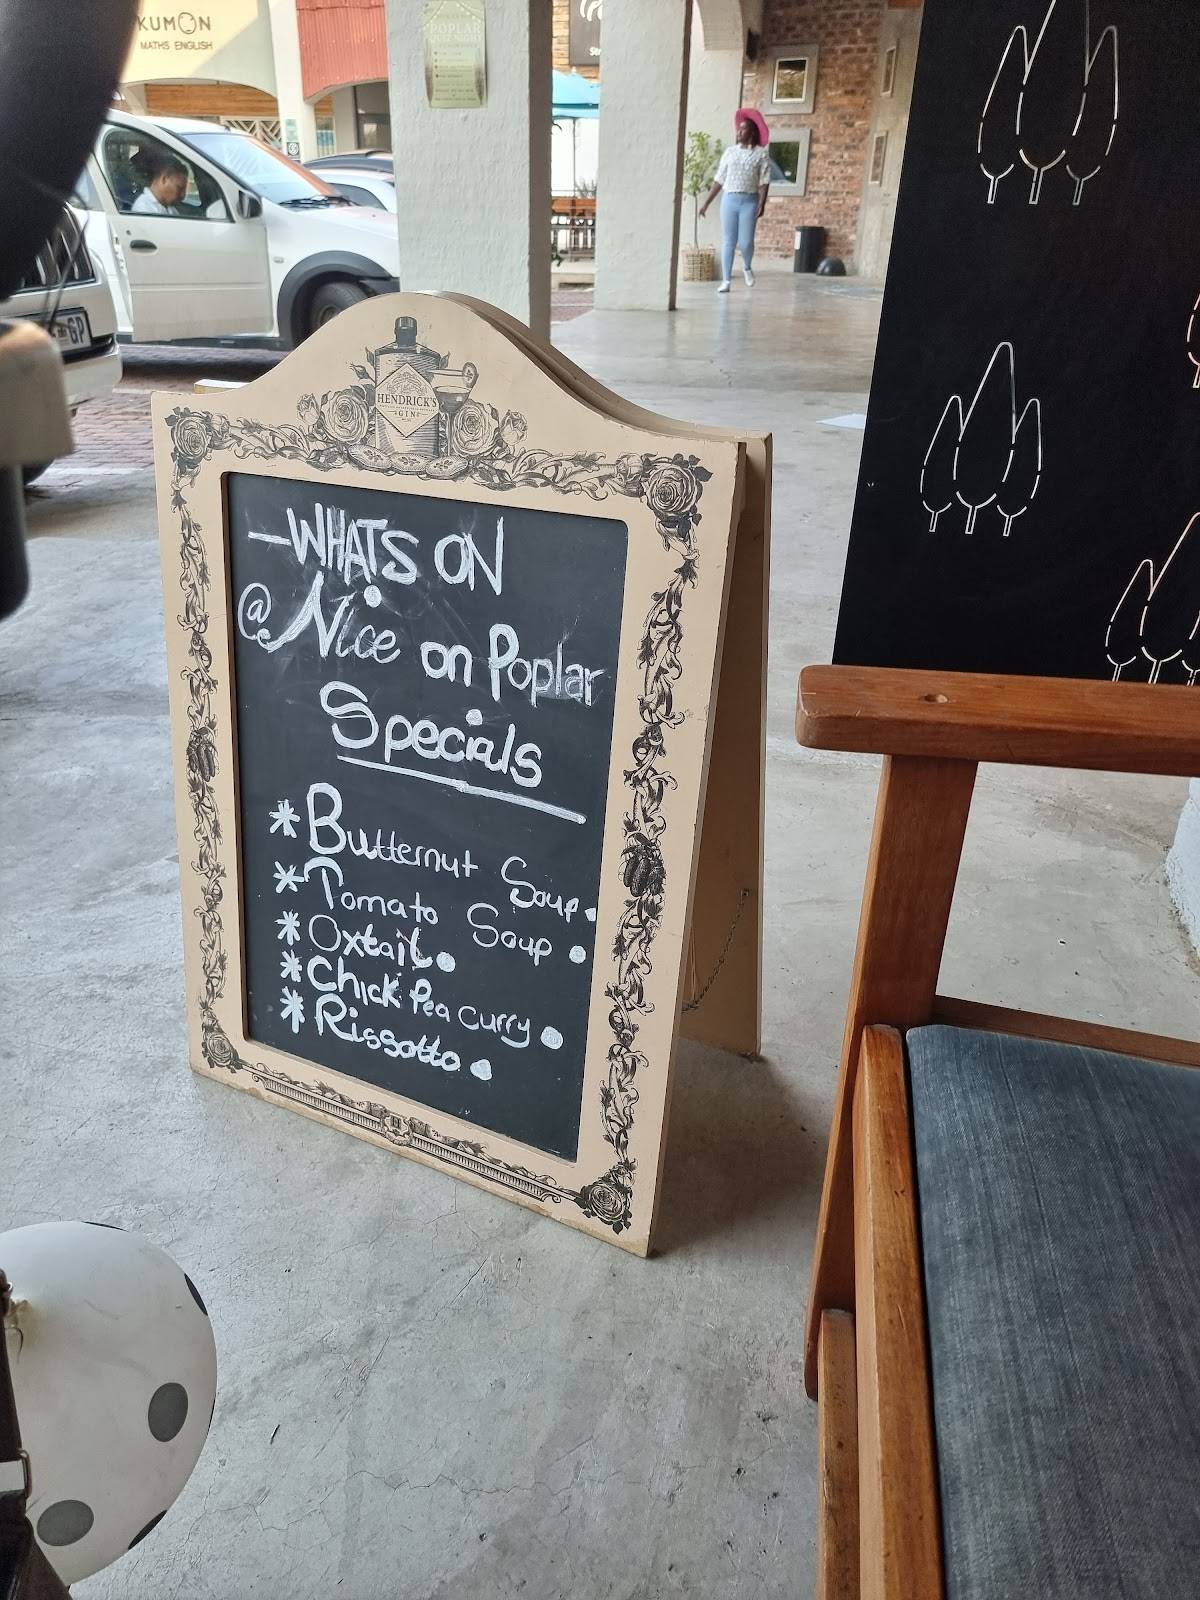 KUMON
MATHS ENGLISH
POPLAR
GP
HENDRICK'S
GIN
-WHATS ON
@ Nice on Poplar
Specials
* Butternut Soup.
* Tomato Soup.
* Oxtail.
* Chick Pea curry.
* Rissotto.